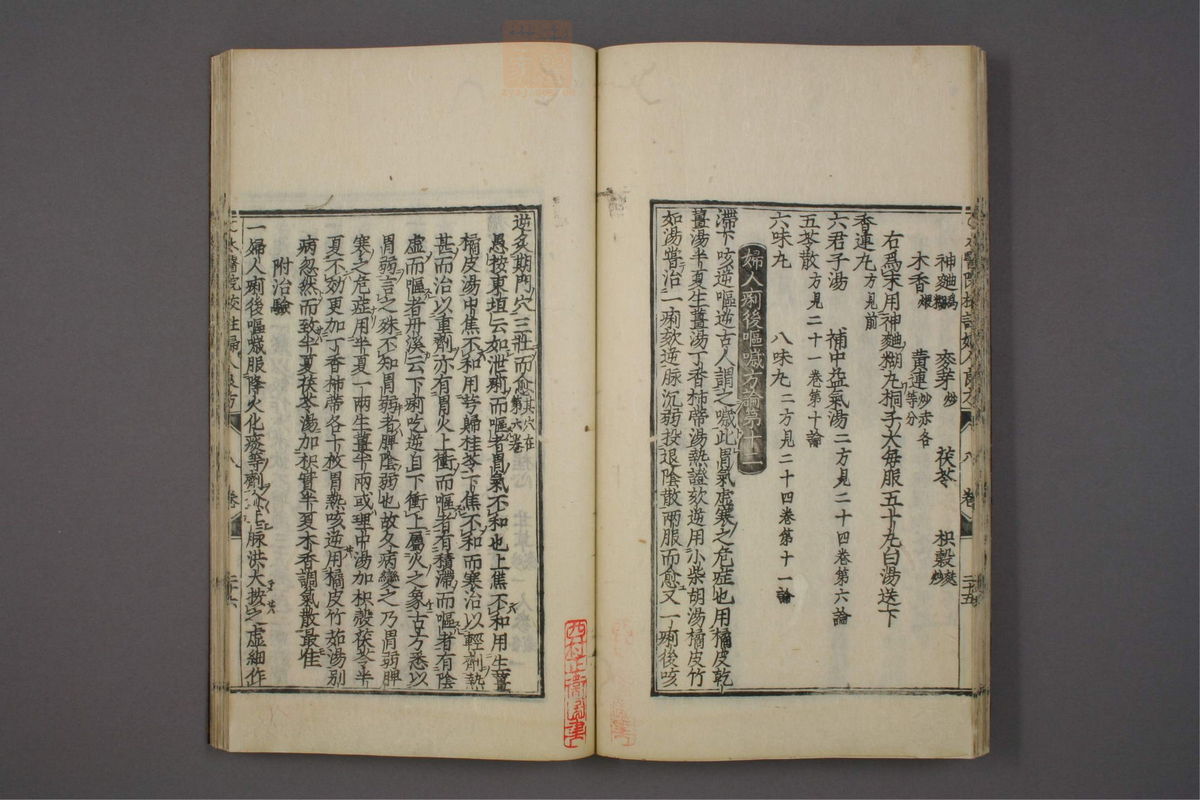 神麯爲糊 麥芽炒 茯苓 枳殻麸炒
木香煨 黄連炒赤各等分
右爲末用神麯糊丸桐子大毎服五十丸白湯送下
香連丸方見前
六君子湯 補中益氣湯二方見二十四卷第六論
五苓散方見二十一卷第十論
六味丸 八味丸二方見二十四卷第十一論
婦人痢後嘔噦方論第十二
滯下咳逆嘔逆古人謂之噦此胃氣虚寒之危症也用橘皮乾
薑湯半夏生薑湯丁香柿蔕湯熱證欬逆用小柴胡湯橘皮竹
如湯嘗治一痢欬逆脉沉弱投退陰散兩服而愈又一痢後咳
卷
二十五
逆灸期門穴三壯而愈其穴在第六卷
愚按東垣云如泄痢而嘔者胃氣不和也上焦不和用生薑
橘皮湯中焦不和用芎歸桂苓下焦不和而寒治以輕劑熱
甚而治以重劑亦有胃火上衝而嘔者有積滯而嘔者有陰
虚而嘔者丹溪云下痢吃逆自下衝上屬火之象古方悉以
胃弱言之殊不知胃弱者脾陰弱也故久病變之乃胃弱脾
寒之危症用半夏一兩生薑半兩或理中湯加枳殻茯苓半
夏不効更加丁香柿蔕各十枚胃熱咳逆用橘皮竹茹湯別
病忽然而致半夏茯苓湯加枳實半夏木香調氣散最佳
附治驗
一婦人痢後嘔噦服降火化痰等劑脉洪大按之虚細作
八 卷
二十六
西村